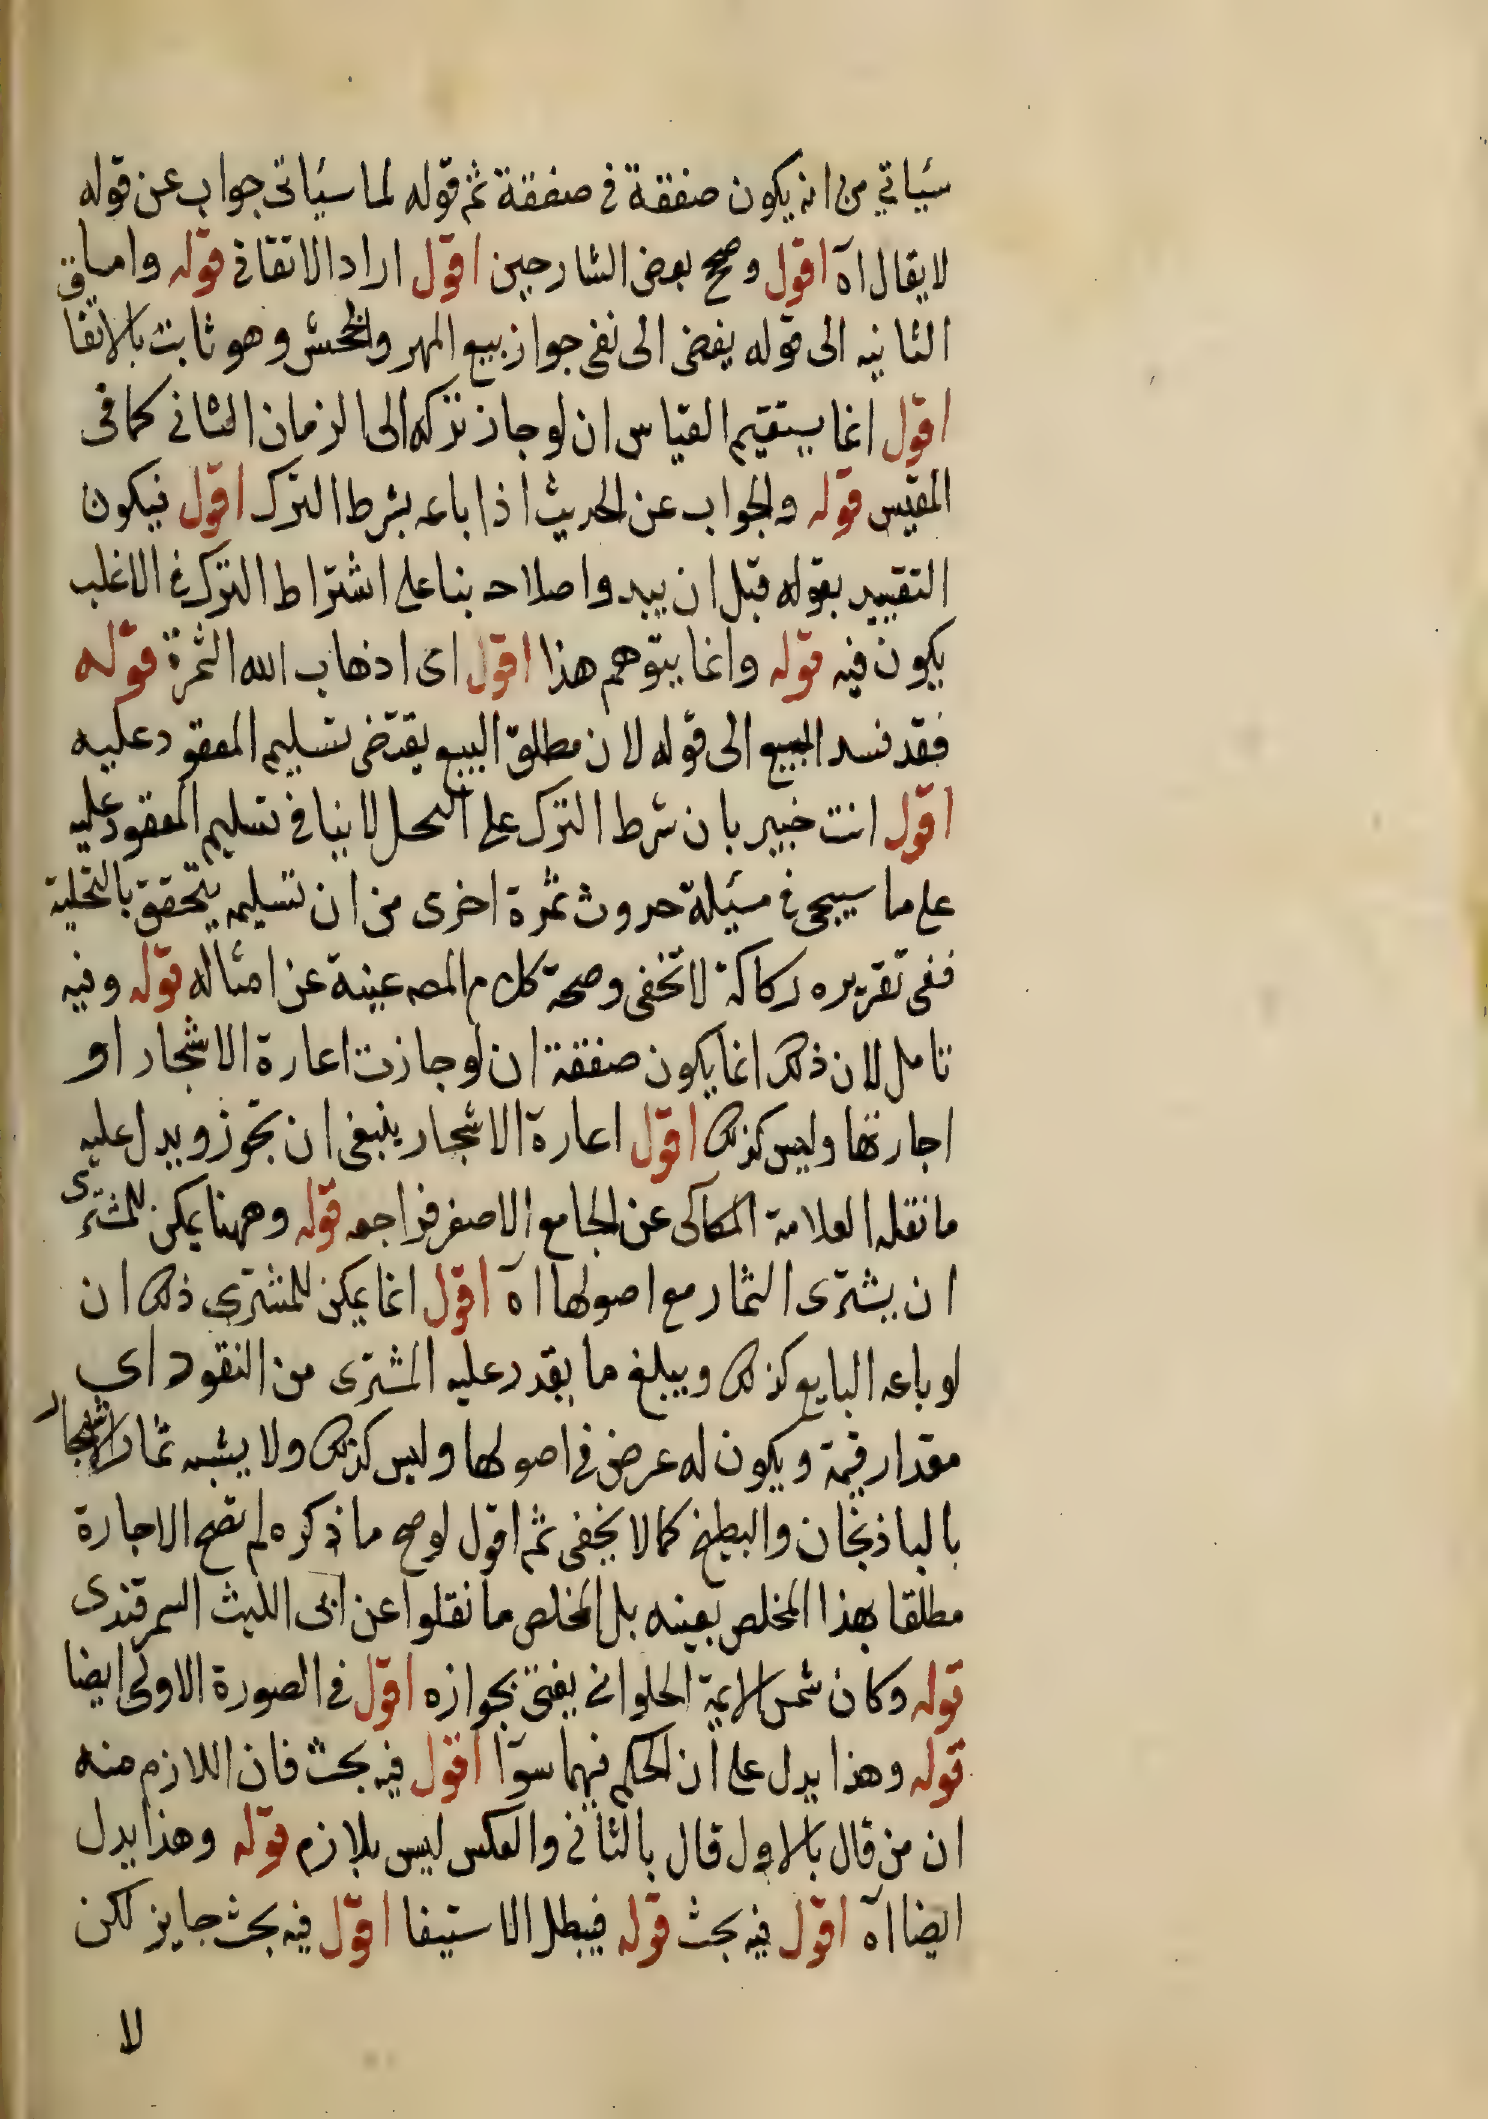 سيأتي من انه يكون صفقة في صفقة ثم قوله لما سيأتي جواب عن قوله
لا يقال اه اقول وصحح بعض الشارحين اقول اراد الاتقاني قوله واما
الثانيه الى قوله يفضي الى نفى جواز بيع المهر والجحش وهو ثابت بالاتفاق
اقول انما يستقيم القياس ان لو جاز تركه الى الزمان الثاني كما في
المقيس قوله والجواب عن الحديث اذا باعه بشرط الترك اقول فيكون
التقييد بقوله قبل ان يبدو اصلاحه بنا على اشتراط الترك في الاغلب
يكون فيه قوله وانما يتوهم هذا اقول اى اذهاب الله الثمرة قوله
فقد فسد البيع الى قوله لان مطلق البيع يقتضى تسليم المعقود عليه
اقول انت خبير بان شرط الترك على النحل لا ينافي تسليم المعقود عليه
على ما سيجى في مسئلة حدوث ثمرة اخرى من ان تسليمه يتحقق بالتخلية
ففى تقريره ركاكة لا تخفى وصحة كلام المصه غنية عن امثاله قوله وفيه
تامل لان ذلك انما يكون صفقة ان لو جازت اعارة الاشجار او
اجارتها وليس كذلك اقول اعارة الاشجار ينبغى ان تجوز ويدل عليه
ما نقله العلامة الكاكى عن الجامع الاصغر فراجعه قوله وههنا يمكن للمشترى
ان يشترى الثمار مع اصولها اه اقول انما يمكن للمشتري ذلك ان
لو باعه البايع كذلك ويبلغ ما يقدر عليه المشترى من النقود اي
مقدار قيمة ويكون له عرض في اصولها وليس كذلك ولا يشبه ثمار الاشجار
بالباذنجان والبطيخ كما لا يخفى ثم اقول لو صح ما ذكره لم تصح الاجارة
مطلقا بهذا المخلص بعينه بل المخلص ما نقلوا عن ابى الليث السمرقندى
قوله وكان شمس الايمة الحلواني يفتى بجوازه اقول في الصورة الاولى ايضا
قوله وهذا يدل على ان الحكم فيهما سوآ اقول فيه بحث فان اللازم منه
ان من قال بالاول قال بالثاني والعكس ليس بلازم قوله وهذا يدل
ايضا اه اقول فيه بحث قوله فيبطل الاستيفا اقول فيه بحث جايز لكن
لا